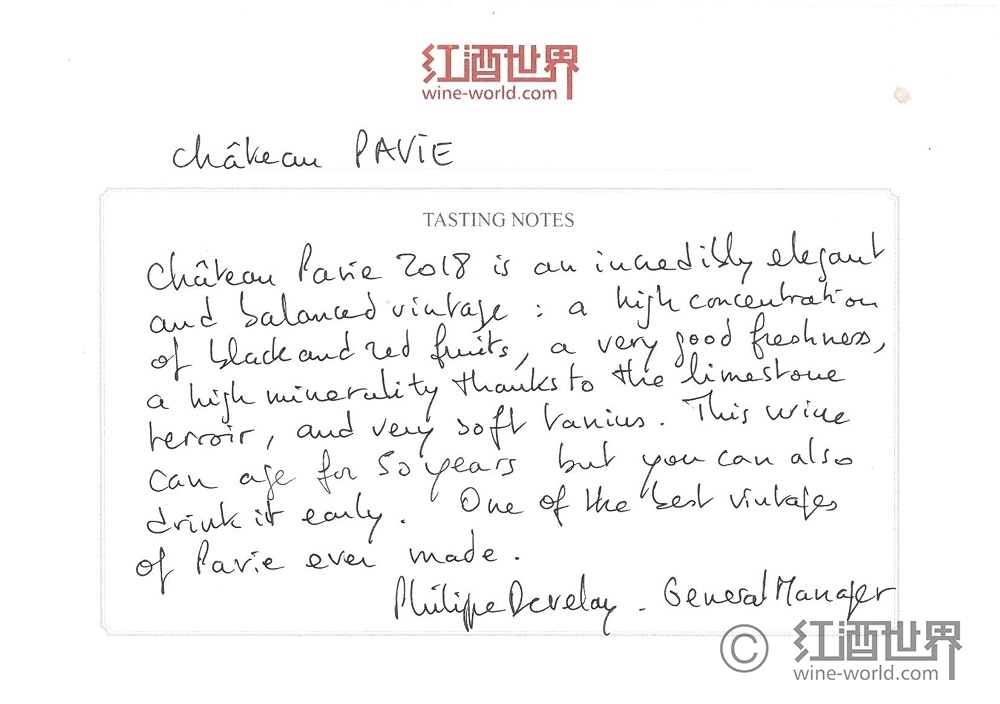 红酒世界
wine-world.com
Château PAVIE
TASTING NOTES
Château Pavie 2018 is an incredibly elegant
and balanced vintage : a high concentration
of black and red fruits, a very good freshness,
a high minerality thanks to the limestone
terroir, and very soft tanins. This wine
can age for 50 years but you can also
drink it early. One of the best vintages
of Pavie ever made.
Philippe Develay - General Manager
© 红酒世界
wine-world.com